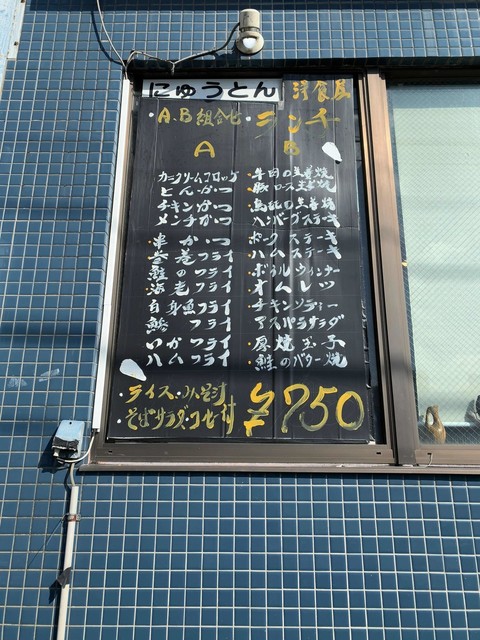 にゅうとん 洋食屋
・A.B組合せ ランチ
A B
カニクリームコロッケ ・牛肉の生姜焼
とんかつ ・豚ロース生姜焼
チキンかつ ・鳥肉の生姜焼
メンチかつ ・ハンバーグステーキ
・串かつ ・ポークステーキ
フライ ・ハムステーキ
鮭のフライ ・ボイルウィンナー
海老フライ ・オムレツ
白身魚フライ ・チキンソテー
フライ ・アスパラサラダ
いかフライ ・厚焼玉子
ハムフライ ・鮭のバター焼
・ライス・みそ汁
・そばサラダ・コーヒー付 ¥750